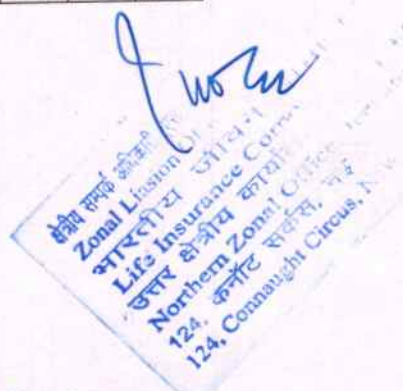 क्षेत्रीय सम्पर्क अधिकारी
Zonal Liasion
भारतीय जीवन
Life Insurance
उत्तर क्षेत्रीय
Northern Zonal Office
124, कनॉट सर्कस,
124, Connaught Circus,